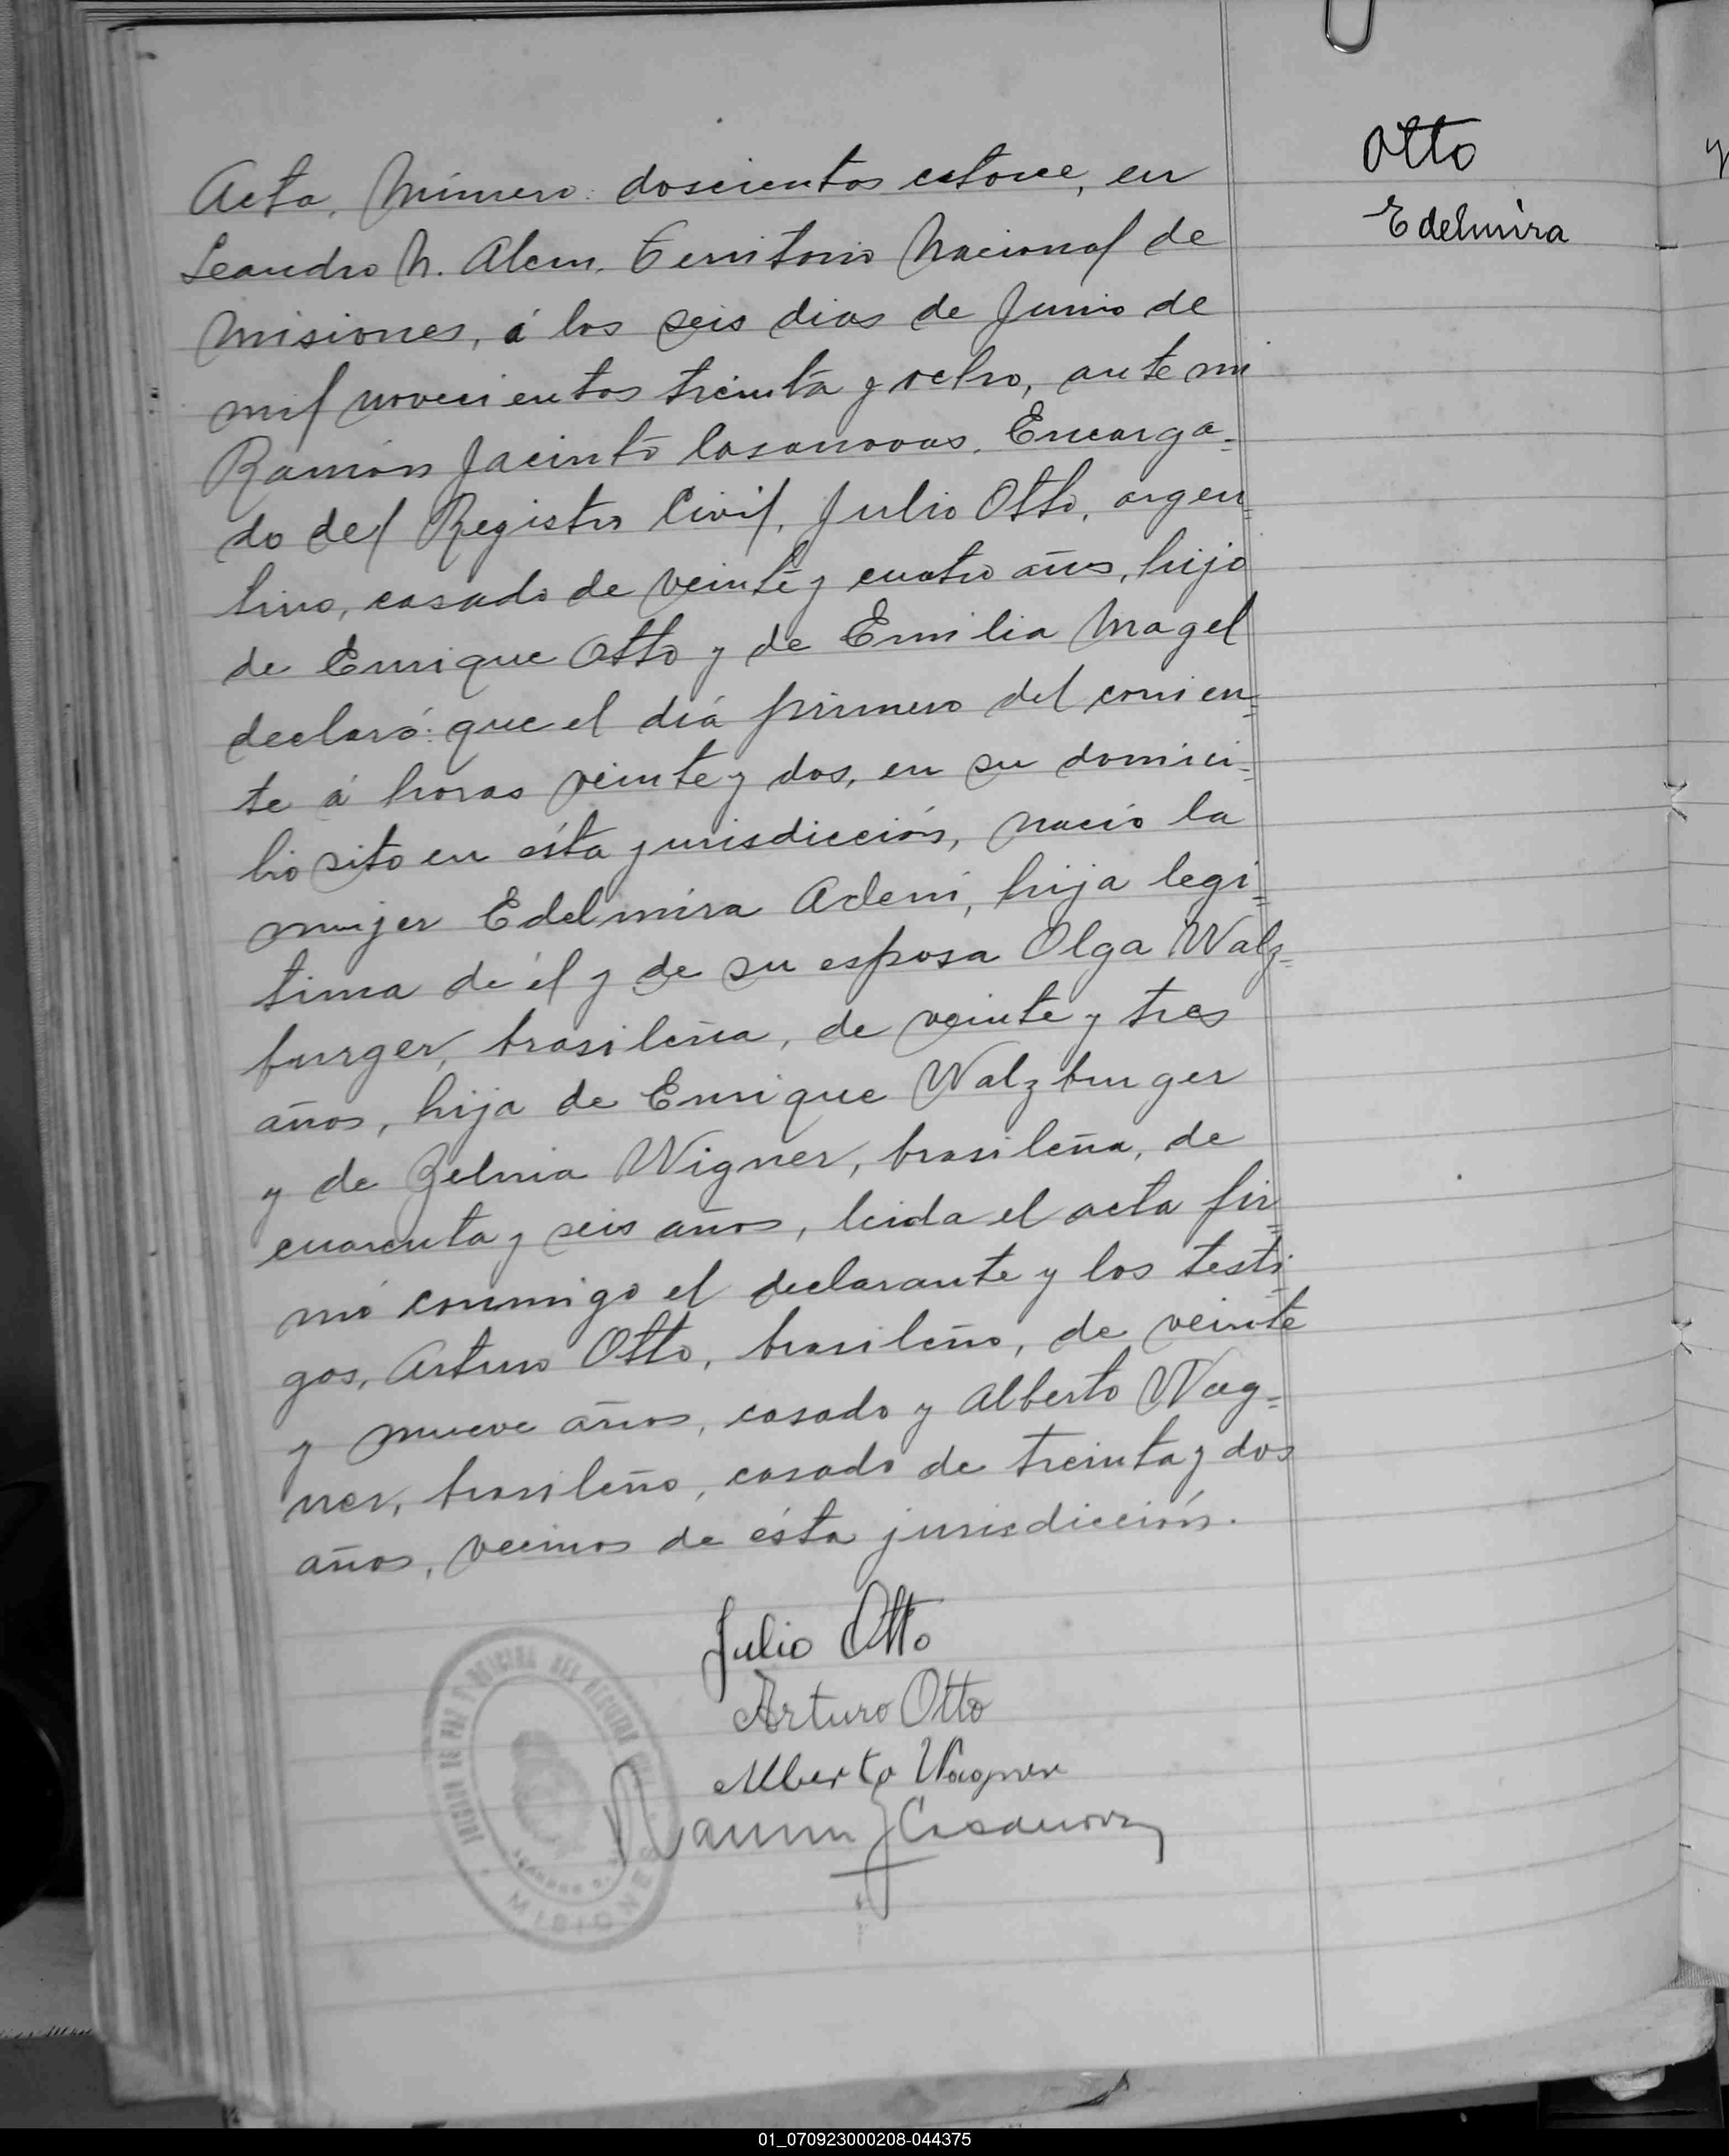 Otto
Edelmira
Acta, Número: doscientos catorce, en
Leandro N. Alem. Territorio Nacional de
Misiones, á los seis dias de Junio de
mil novecientos treinta y ocho, ante mi
Ramón Jacinto Casanovas. Encarga=
do del Registro Civil, Julio Otto, argen=
tino, casado de veinte y cuatro años, hijo
de Enrique Otto y de Emilia Magel
declaró: que el día primero del corrien=
te á horas veinte y dos, en su domici=
lio sito en ésta jurisdicción, nació la
mujer Edelmira Aleni, hija legi=
tima de él y de su esposa Olga Walz=
burger, brasileña, de veinte y tres
años, hija de Enrique Walzburger
y de Zelmia Wigner, brasileña, de
cuarenta y seis años, leida el acta fir=
mó conmigo el declarante y los testi=
gos, Arturo Otto, brasileño, de veinte
y nueve años, casado y Alberto Wag=
ner, brasileño, casado de treinta y dos
años, vecinos de ésta jurisdicción.
Julio Otto
Arturo Otto
Alberto Wagner
Ramon J Casanovas
JUZGADO DE PAZ Y OFICINA DEL REGISTRO CIVIL
LEANDRO N.
MISIONES
01_070923000208-044375